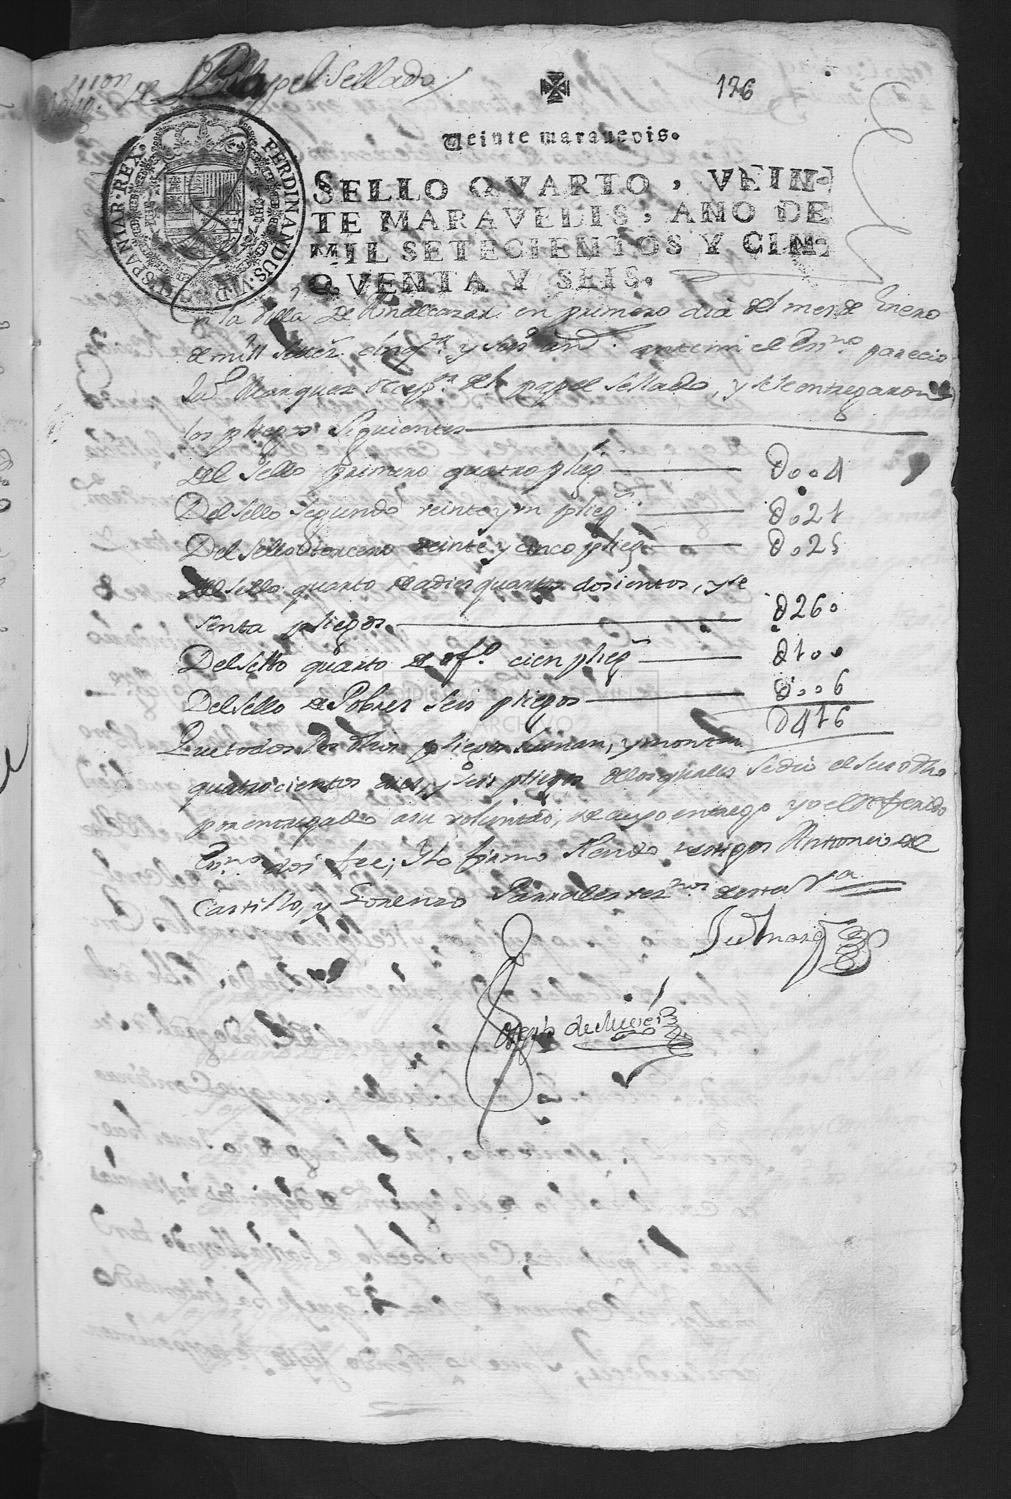 Papel Sellado
126
Veinte marauedis.
SELLO QVARTO, VEIN-
TE MARAVEDIS, AÑO DE
MIL SETECIENTOS Y CIN-
QVENTA Y SEIS.
FERDINANDUS·VI·D·G· HISPANIAR·REX·
en la Villa de Aznalcazar en primero dia del mes de Enero
de mill setez.s cinq.ta y seis an.s antemi el Ess.no parecio
Ju.n Marquez Recep.or del papel sellado, y se le entregaron
los pliegos siguientes
del Sello primero quatro plieg.s D004
Del sello segundo veinte y un plieg.s D021
Del sello terzero veinte y cinco plieg.s D025
del sello quarto de a diez quartos dosientos, y se
senta pliegos D260
Del sello quarto de of.o cien plieg.s D100
Del sello de Pobres seis pliegos D006
D416
Que todos los dhos pliegos suman, y montan
quatrocientos diez, y seis pliegos de los quales se dio el suso dho
por entregado a su voluntad, de cuyo entrego yo el referido
Ess.no doi fee, y lo firmo siendo testigos Antonio de
Castillo, y Lorenzo Parrales vez.nos de esta V.a
Ju.n Marq.z
Joseph de
ARCHIVO